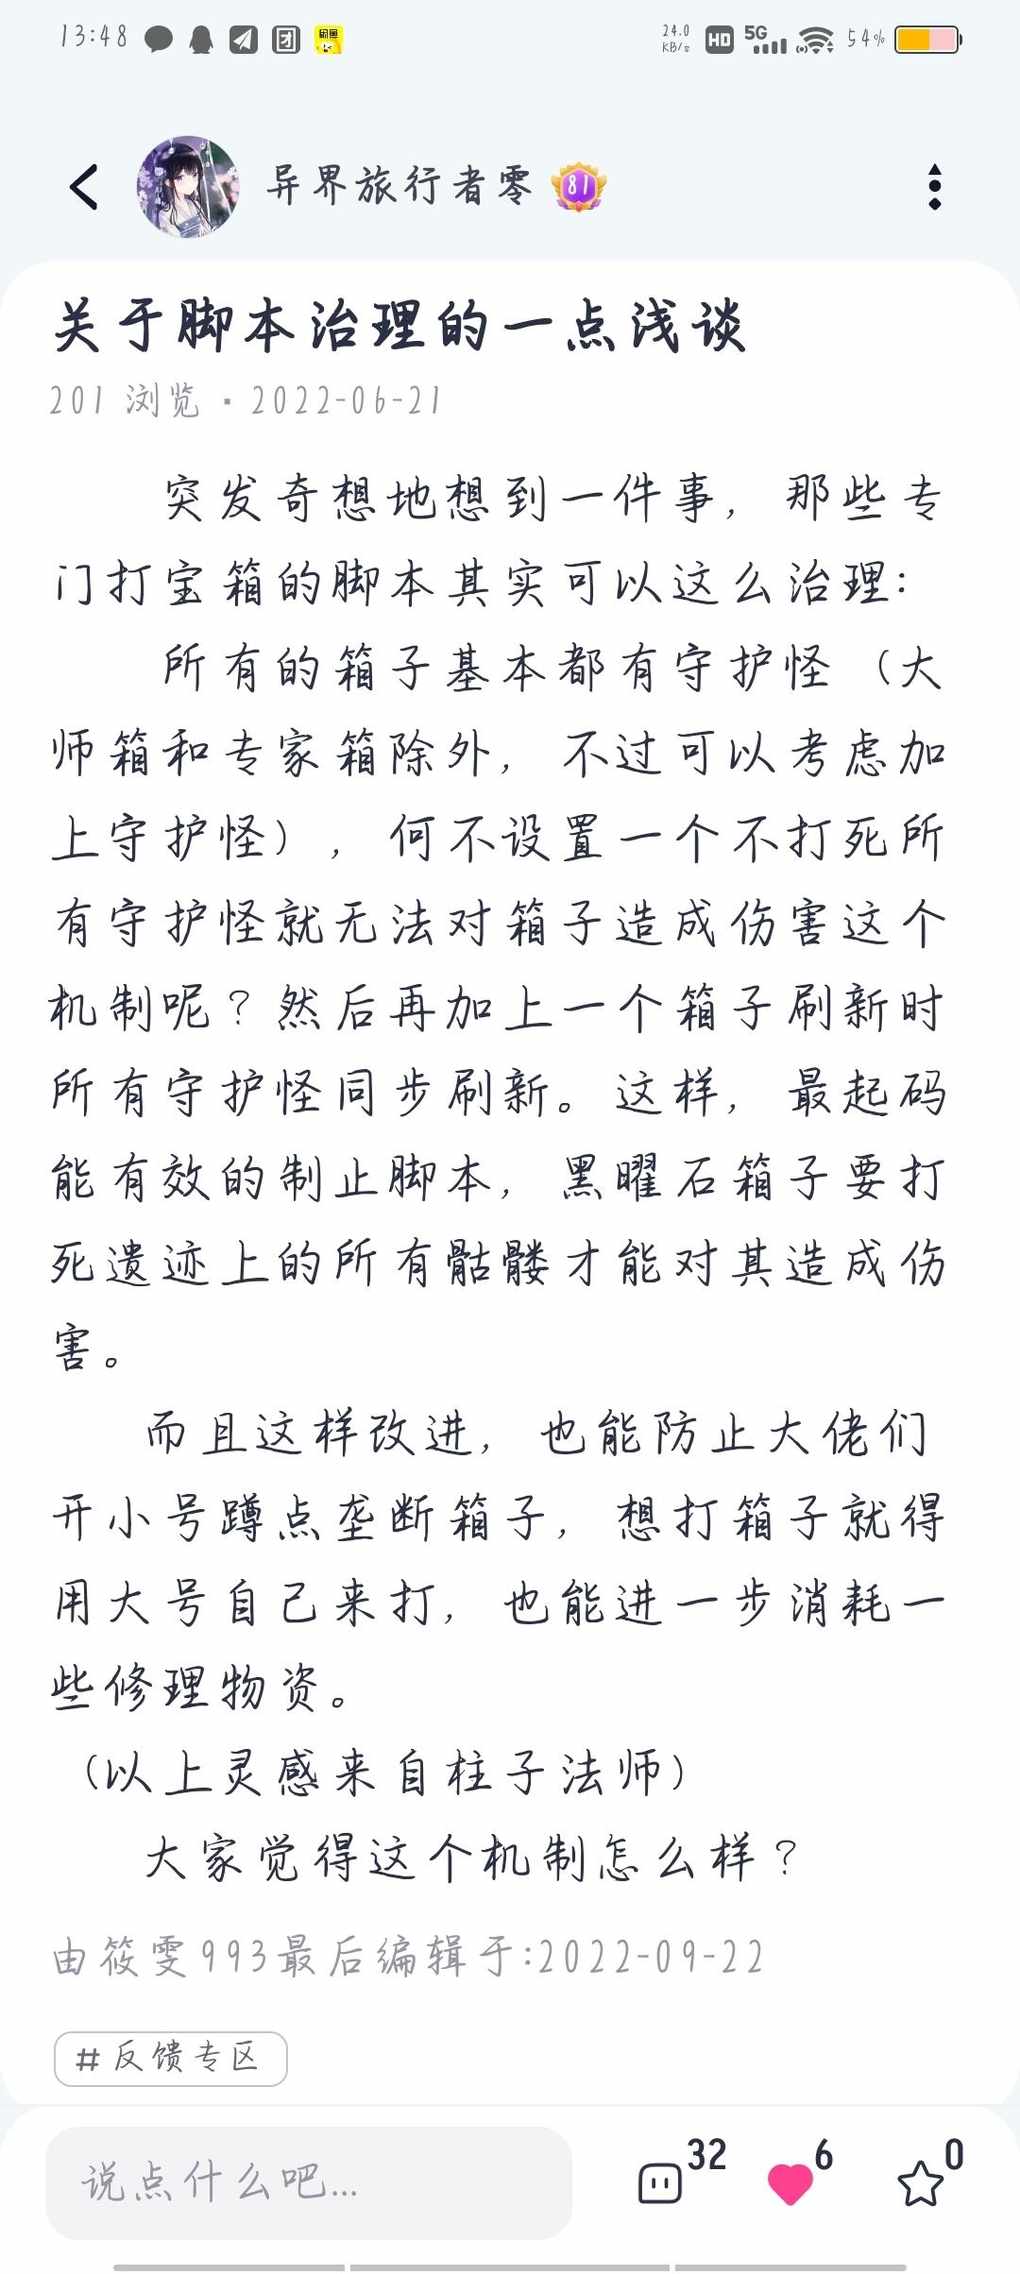 13:48
团
闲鱼
24.0
KB/s
HD
5G
54%
异界旅行者零
81
关于脚本治理的一点浅谈
201 浏览 · 2022-06-21
突发奇想地想到一件事，那些专
门打宝箱的脚本其实可以这么治理：
所有的箱子基本都有守护怪（大
师箱和专家箱除外，不过可以考虑加
上守护怪），何不设置一个不打死所
有守护怪就无法对箱子造成伤害这个
机制呢？然后再加上一个箱子刷新时
所有守护怪同步刷新。这样，最起码
能有效的制止脚本，黑曜石箱子要打
死遗迹上的所有骷髅才能对其造成伤
害。
而且这样改进，也能防止大佬们
开小号蹲点垄断箱子，想打箱子就得
用大号自己来打，也能进一步消耗一
些修理物资。
（以上灵感来自柱子法师）
大家觉得这个机制怎么样？
由筱雯993最后编辑于:2022-09-22
# 反馈专区
说点什么吧...
32
6
0